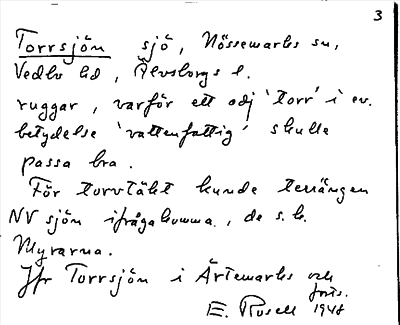 3
Torrsjön sjö, Nössemarks sn,
Vedbo hd, Älvsborgs l.
ruggar, varför ett adj 'torr' i ev.
betydelse 'vattenfattig' skulle
passa bra.
För torvtäkt kunde terrängen
NV sjön ifrågakomma, de s.k.
Myrarna.
Jfr Torrsjön i Ärtemarks och
forts.
E. Rosell 1948